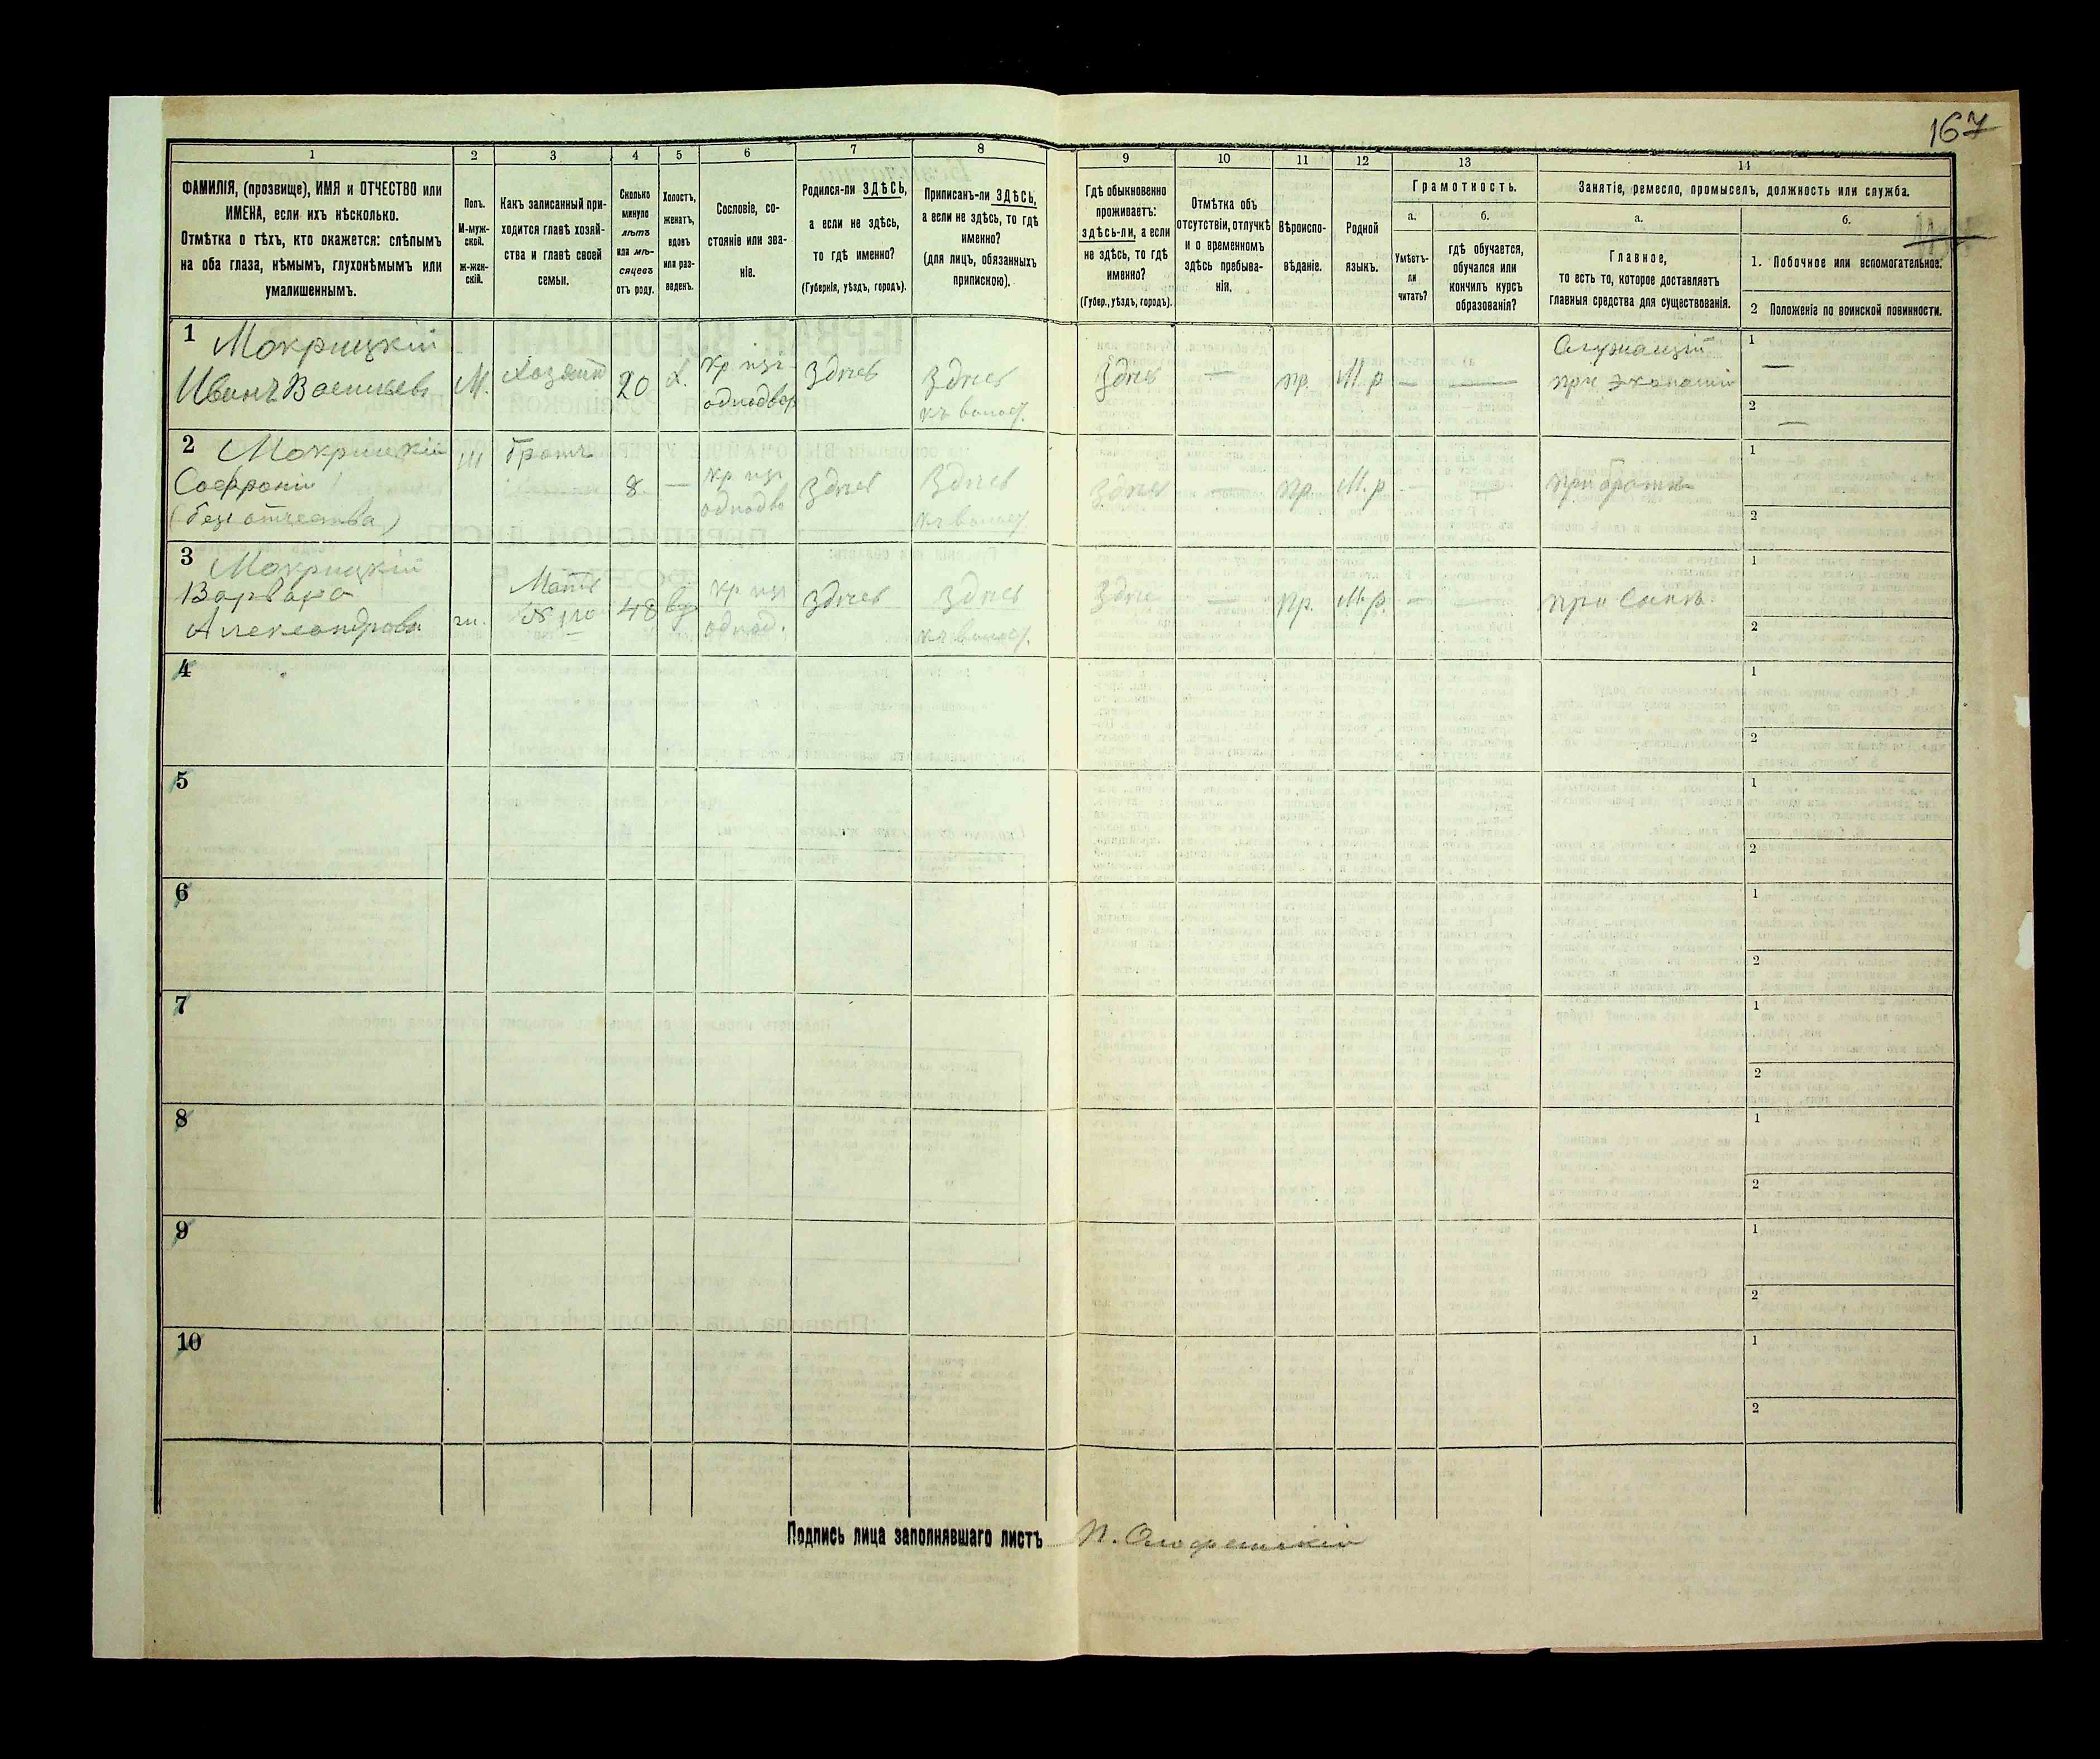 167
1
2
3
4
5
6
7
8
ФАМИЛІЯ, (прозвище), ИМЯ и ОТЧЕСТВО или
ИМЕНА, если ихъ нѣсколько.
Отмѣтка о тѣхъ, кто окажется: слѣпымъ
на оба глаза, нѣмымъ, глухонѣмымъ или
умалишеннымъ.
Полъ.
М-муж-
ской.
ж-жен-
скій.
Какъ записанный при-
ходится главѣ хозяй-
ства и главѣ своей
семьи.
Сколько
минуло
лѣтъ
или мѣ-
сяцевъ
отъ роду.
Холостъ,
женатъ,
вдовъ
или раз-
веденъ.
Сословіе, со-
стояніе или зва-
ніе.
Родился-ли ЗДѢСЬ,
а если не здѣсь,
то гдѣ именно?
(Губернія, уѣздъ, городъ).
Приписанъ-ли ЗДѢСЬ,
а если не здѣсь, то гдѣ
именно?
(для лицъ, обязанныхъ
припискою).
9
10
11
12
13
14
Гдѣ обыкновенно
проживаетъ:
здѣсь-ли, а если
не здѣсь, то гдѣ
именно?
(Губер., уѣздъ, городъ).
Отмѣтка объ
отсутствіи, отлучкѣ
и о временномъ
здѣсь пребыва-
ніи.
Вѣроиспо-
вѣданіе.
Родной
языкъ.
Грамотность.
а.
б.
Умѣетъ-
ли
читать?
гдѣ обучается,
обучался или
кончилъ курсъ
образованія?
Занятіе, ремесло, промыселъ, должность или служба.
а.
б.
Главное,
то есть то, которое доставляетъ
главныя средства для существованія.
1. Побочное или вспомогательное.
2 Положеніе по воинской повинности.
1
Мокрицкій
Иванъ Васильевъ
М.
Хозяинъ
20
х.
кр изъ
однодвор
Здѣсь
Здѣсь
къ волост.
Здѣсь
—
пр.
М. р
—
—
Служащій
при экономіи
1
—
2
—
2
Мокрицкій
Софроній
(безъ отчества)
М
Братъ
8
—
кр изъ
однодво
Здѣсь
Здѣсь
къ волост.
Здѣсь
—
пр.
М. р
—
—
при братѣ
1
2
3
Мокрицкій
Варвара
Александрова
ж.
Мать
№ 1го
48
вд
кр изъ
однод.
Здѣсь
Здѣсь
къ волост.
Здѣсь
—
пр.
М. р.
—
—
при сынѣ.
1
2
4
1
2
5
1
2
6
1
2
7
1
2
8
1
2
9
1
2
10
1
2
Подпись лица заполнявшаго листъ